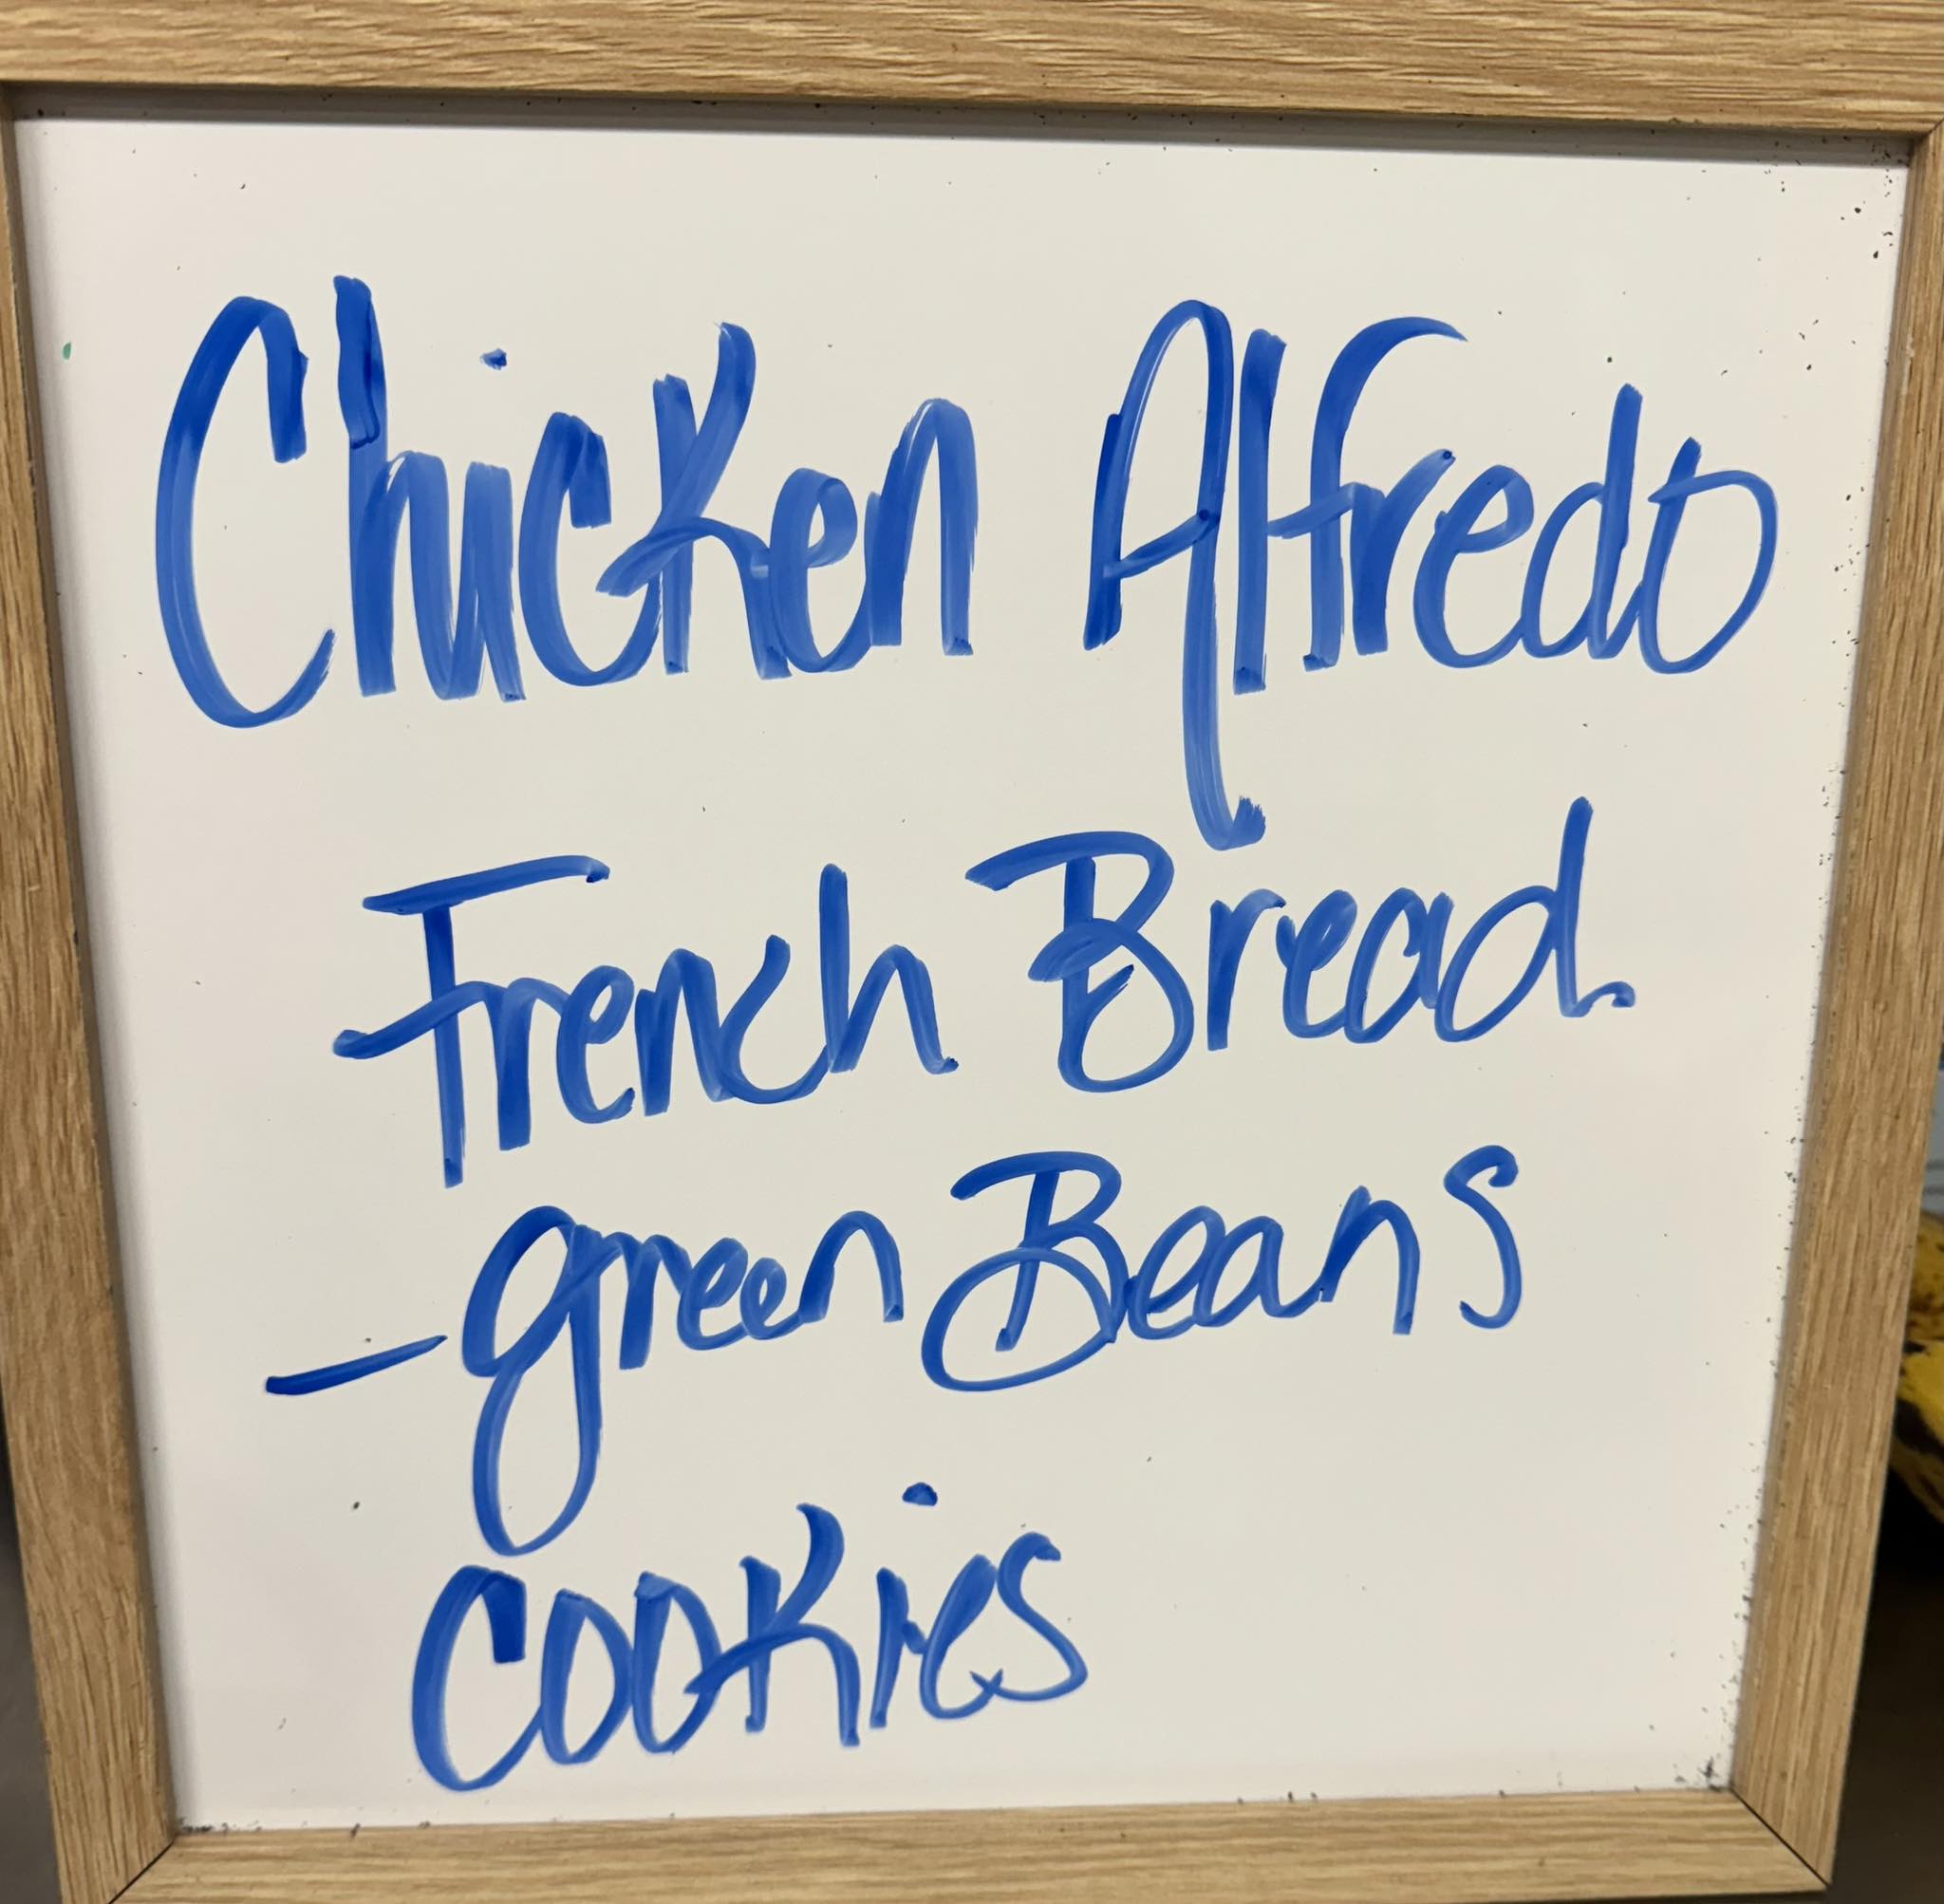 Chicken Alfredo
French Bread
- green Beans
cookies